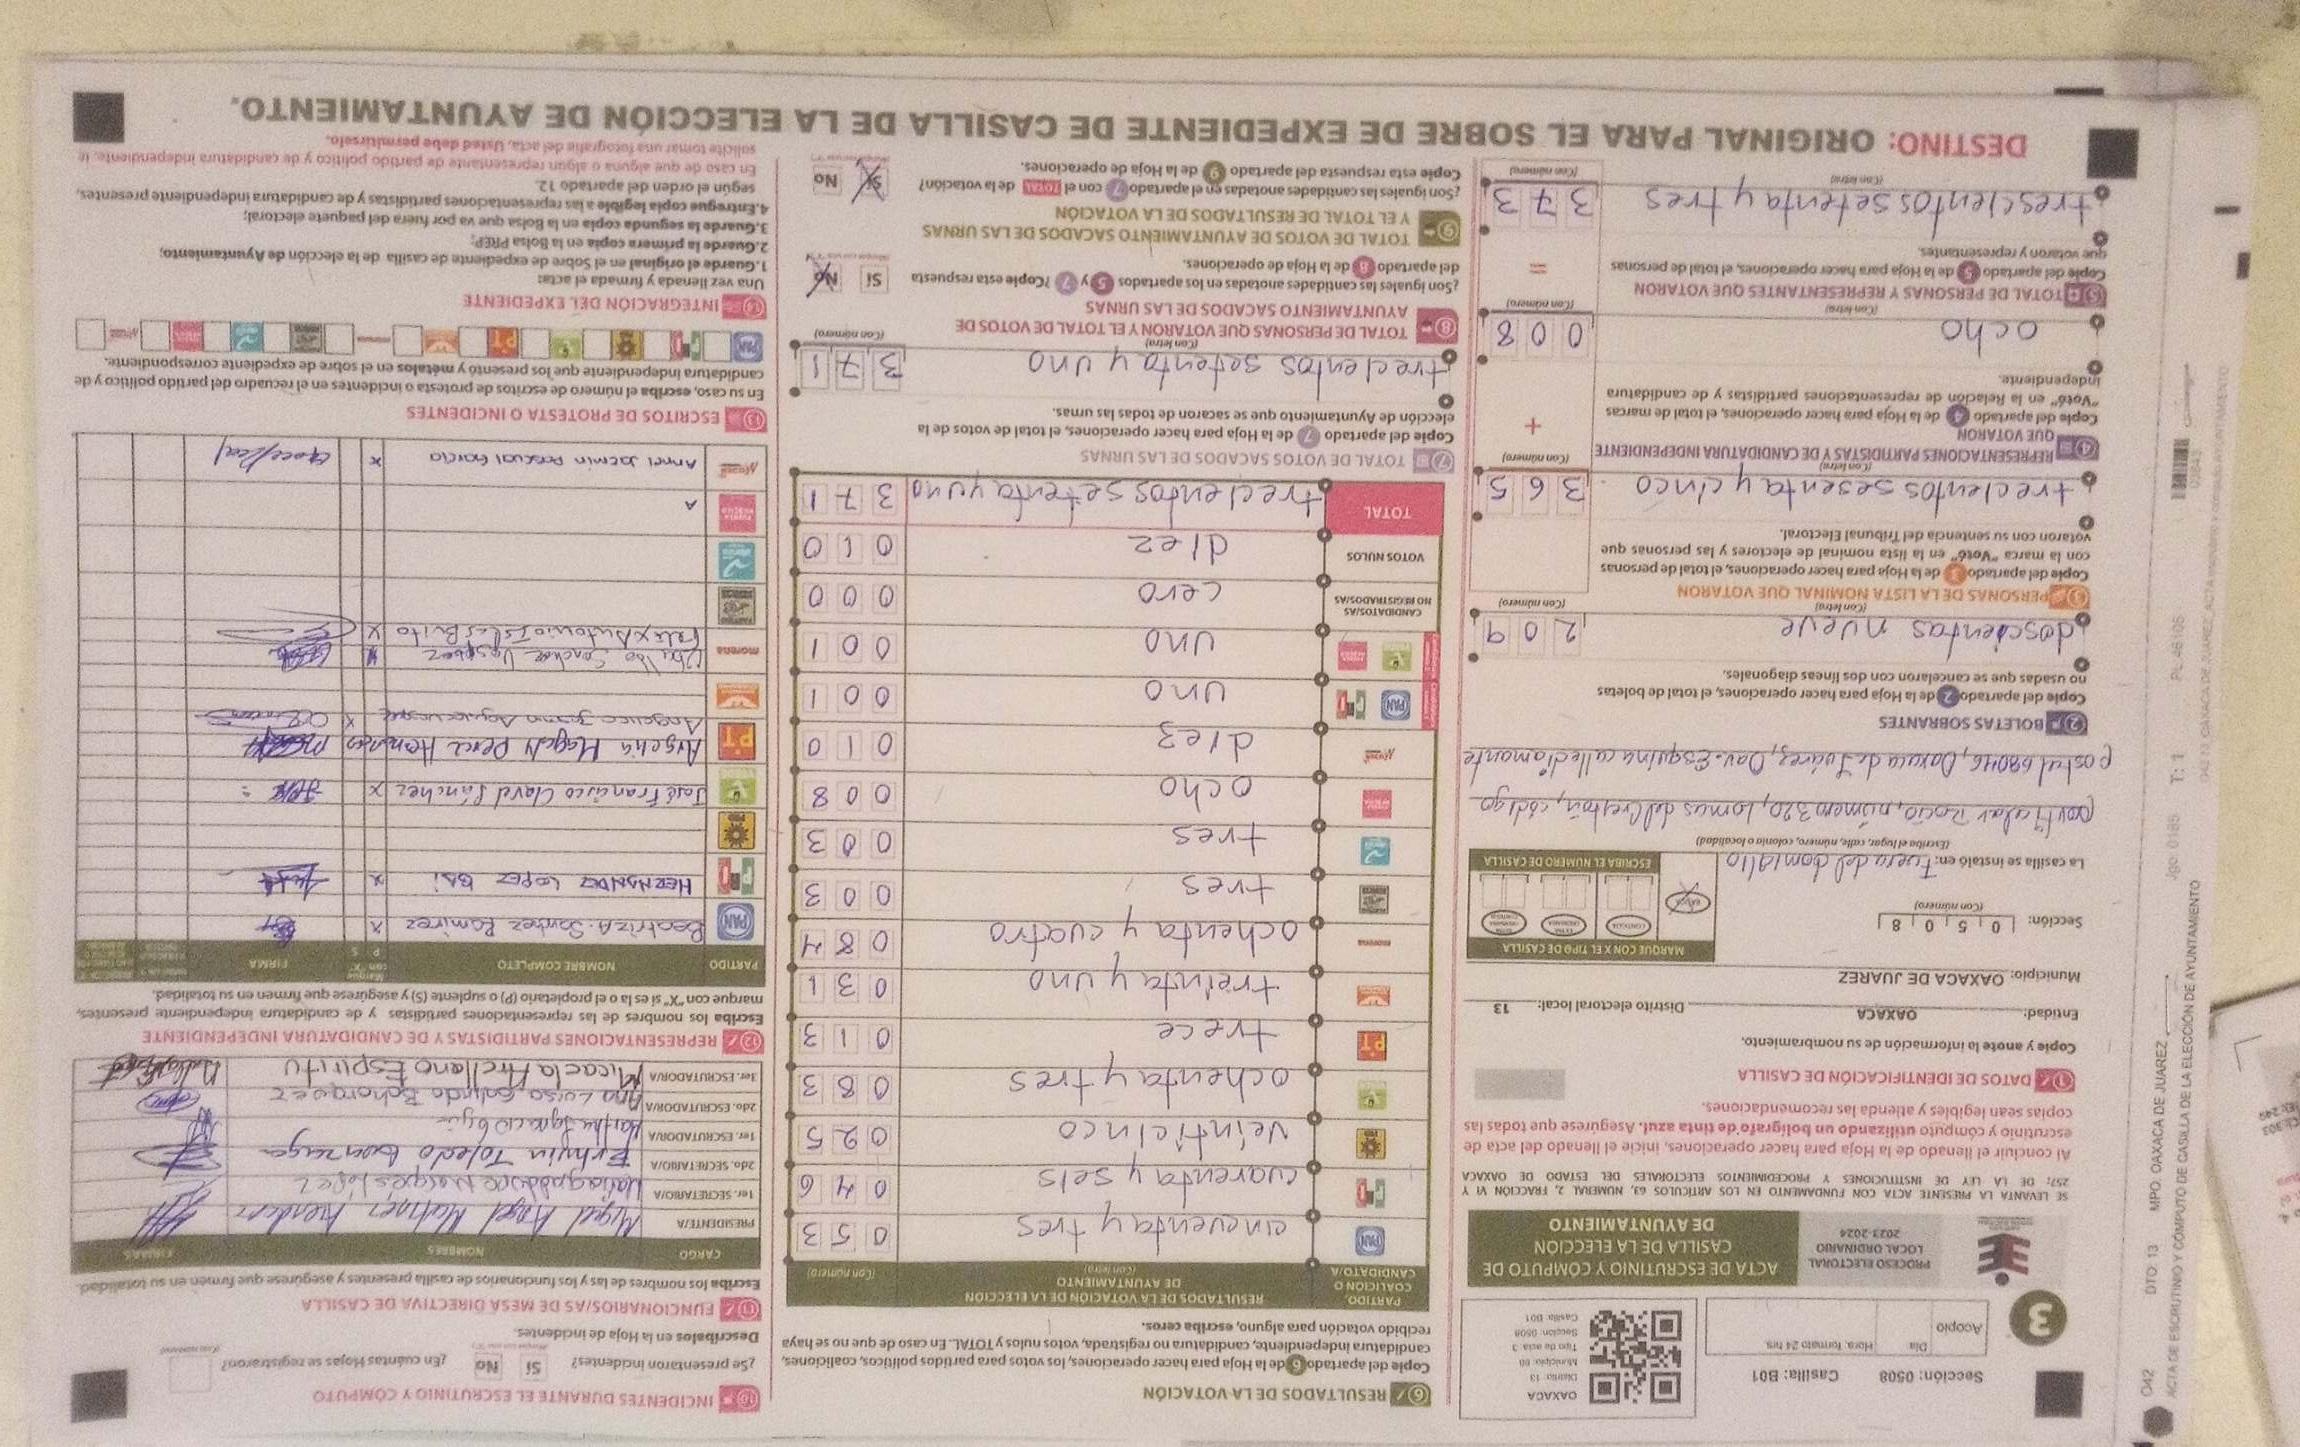 Sección: 0508 Casilla: B01
Acopio
Día Hora: formato 24 hrs
OAXACA
Distrito: 13
Tipo de acta: 3
Sección: 0508
Casilla: B01
3
PROCESO ELECTORAL
LOCAL ORDINARIO
2023-2024
ACTA DE ESCRUTINIO Y CÓMPUTO DE
CASILLA DE LA ELECCIÓN
DE AYUNTAMIENTO
SE LEVANTA LA PRESENTE ACTA CON FUNDAMENTO EN LOS ARTÍCULOS 63, NUMERAL 2, FRACCIÓN VI Y
257; DE LA LEY DE INSTITUCIONES Y PROCEDIMIENTOS ELECTORALES DEL ESTADO DE OAXACA
Al concluir el llenado de la Hoja para hacer operaciones, inicie el llenado del acta de
escrutinio y cómputo utilizando un bolígrafo de tinta azul. Asegúrese que todas las
copias sean legibles y atienda las recomendaciones.
1 DATOS DE IDENTIFICACIÓN DE CASILLA
Copie y anote la información de su nombramiento.
Entidad: OAXACA Distrito electoral local: 13
Municipio: OAXACA DE JUAREZ
Sección: 0508
(Con número)
MARQUE CON X EL TIPO DE CASILLA
BÁSICA CONTIGUA
ESCRIBA EL NÚMERO DE CASILLA
La casilla se instaló en: Fuera del domicilio
(Escriba el lugar, calle, número, colonia o localidad)
particular Rocio, número 320, Lomas del Crestón, código
postal 68046, Oaxaca de Juárez, Oax. Esquina calle diamante
2 BOLETAS SOBRANTES
Copie del apartado 2 de la Hoja para hacer operaciones, el total de boletas
no usadas que se cancelaron con dos líneas diagonales.
doscientas nueve 209
(Con letra) (Con número)
3 PERSONAS DE LA LISTA NOMINAL QUE VOTARON
Copie del apartado 3 de la Hoja para hacer operaciones, el total de personas
con la marca "Votó" en la lista nominal de electores y las personas que
votaron con su sentencia del Tribunal Electoral.
trecientos sesenta y cinco 365
(Con letra) (Con número)
4 REPRESENTACIONES PARTIDISTAS Y DE CANDIDATURA INDEPENDIENTE
QUE VOTARON
Copie del apartado 4 de la Hoja para hacer operaciones, el total de marcas
"Votó" en la Relación de representaciones partidistas y de candidatura
independiente.
+
ocho 008
(Con letra) (Con número)
5 TOTAL DE PERSONAS Y REPRESENTANTES QUE VOTARON
Copie del apartado 5 de la Hoja para hacer operaciones, el total de personas
que votaron y representantes.
=
trescientos setenta y tres 373
(Con letra) (Con número)
6 RESULTADOS DE LA VOTACIÓN
Copie del apartado 6 de la Hoja para hacer operaciones, los votos para partidos políticos, coaliciones,
candidatura independiente, candidatura no registrada, votos nulos y TOTAL. En caso de que no se haya
recibido votación para alguno, escriba ceros.
PARTIDO, COALICIÓN O CANDIDATO/A
RESULTADOS DE LA VOTACIÓN DE LA ELECCIÓN
DE AYUNTAMIENTO
(Con letra) (Con número)
PAN cincuenta y tres 053
PRI cuarenta y seis 046
PRD veinticinco 025
ochenta y tres 083
PT trece 013
treinta y uno 031
morena ochenta y cuatro 084
tres 003
tres 003
ocho 008
diez 010
PAN PRI uno 001
uno 001
CANDIDATOS/AS NO REGISTRADOS/AS cero 000
VOTOS NULOS diez 010
TOTAL trecientos setenta y uno 371
7 TOTAL DE VOTOS SACADOS DE LAS URNAS
Copie del apartado 7 de la Hoja para hacer operaciones, el total de votos de la
elección de Ayuntamiento que se sacaron de todas las urnas.
trecientos setenta y uno 371
(Con letra) (Con número)
8 TOTAL DE PERSONAS QUE VOTARON Y EL TOTAL DE VOTOS DE
AYUNTAMIENTO SACADOS DE LAS URNAS
¿Son iguales las cantidades anotadas en los apartados 5 y 7? Copie esta respuesta
del apartado 8 de la Hoja de operaciones.
Sí No
9 TOTAL DE VOTOS DE AYUNTAMIENTO SACADOS DE LAS URNAS
Y EL TOTAL DE RESULTADOS DE LA VOTACIÓN
¿Son iguales las cantidades anotadas en el apartado 7 con el TOTAL de la votación?
Copie esta respuesta del apartado 9 de la Hoja de operaciones.
Sí No
10 INCIDENTES DURANTE EL ESCRUTINIO Y CÓMPUTO
¿Se presentaron incidentes? Sí No ¿En cuántas Hojas se registraron?
Descríbalos en la Hoja de incidentes.
11 FUNCIONARIOS/AS DE MESA DIRECTIVA DE CASILLA
Escriba los nombres de las y los funcionarios de casilla presentes y asegúrese que firmen en su totalidad.
CARGO NOMBRES FIRMAS
PRESIDENTE/A Miguel Angel Martinez
1er. SECRETARIO/A
2do. SECRETARIO/A Toledo
1er. ESCRUTADOR/A
2do. ESCRUTADOR/A Ana Luisa Galindo Bohorquez
3er. ESCRUTADOR/A Micaela Arellano Espiritu
12 REPRESENTACIONES PARTIDISTAS Y DE CANDIDATURA INDEPENDIENTE
Escriba los nombres de las representaciones partidistas y de candidatura independiente presentes,
marque con "X" si es la o el propietario (P) o suplente (S) y asegúrese que firmen en su totalidad.
PARTIDO NOMBRE COMPLETO Marque con "X" P S FIRMA
PAN Beatriz A. Sanchez Ramirez X
PRI HERNANDEZ LOPEZ X
PRD
José Francisco Clavel Sánchez X
PT Argelia Magaly Perez Hernandez X
Angelica X
morena Sanchez X
Felix Antonio Brito X
A
Annel Jazmin Pascual García X
13 ESCRITOS DE PROTESTA O INCIDENTES
En su caso, escriba el número de escritos de protesta o incidentes en el recuadro del partido político y de
candidatura independiente que los presentó y métalos en el sobre de expediente correspondiente.
14 INTEGRACIÓN DEL EXPEDIENTE
Una vez llenada y firmada el acta:
1. Guarde el original en el Sobre de expediente de casilla de la elección de Ayuntamiento;
2. Guarde la primera copia en la Bolsa PREP;
3. Guarde la segunda copia en la Bolsa que va por fuera del paquete electoral;
4. Entregue copia legible a las representaciones partidistas y de candidatura independiente presentes,
según el orden del apartado 12.
En caso de que alguna o algún representante de partido político y de candidatura independiente, le
solicite tomar una fotografía del acta, Usted debe permitírselo.
DESTINO: ORIGINAL PARA EL SOBRE DE EXPEDIENTE DE CASILLA DE LA ELECCIÓN DE AYUNTAMIENTO.
O42 DTO: 13 MPO. OAXACA DE JUAREZ T: 1 PL 46105
ACTA DE ESCRUTINIO Y CÓMPUTO DE CASILLA DE LA ELECCIÓN DE AYUNTAMIENTO